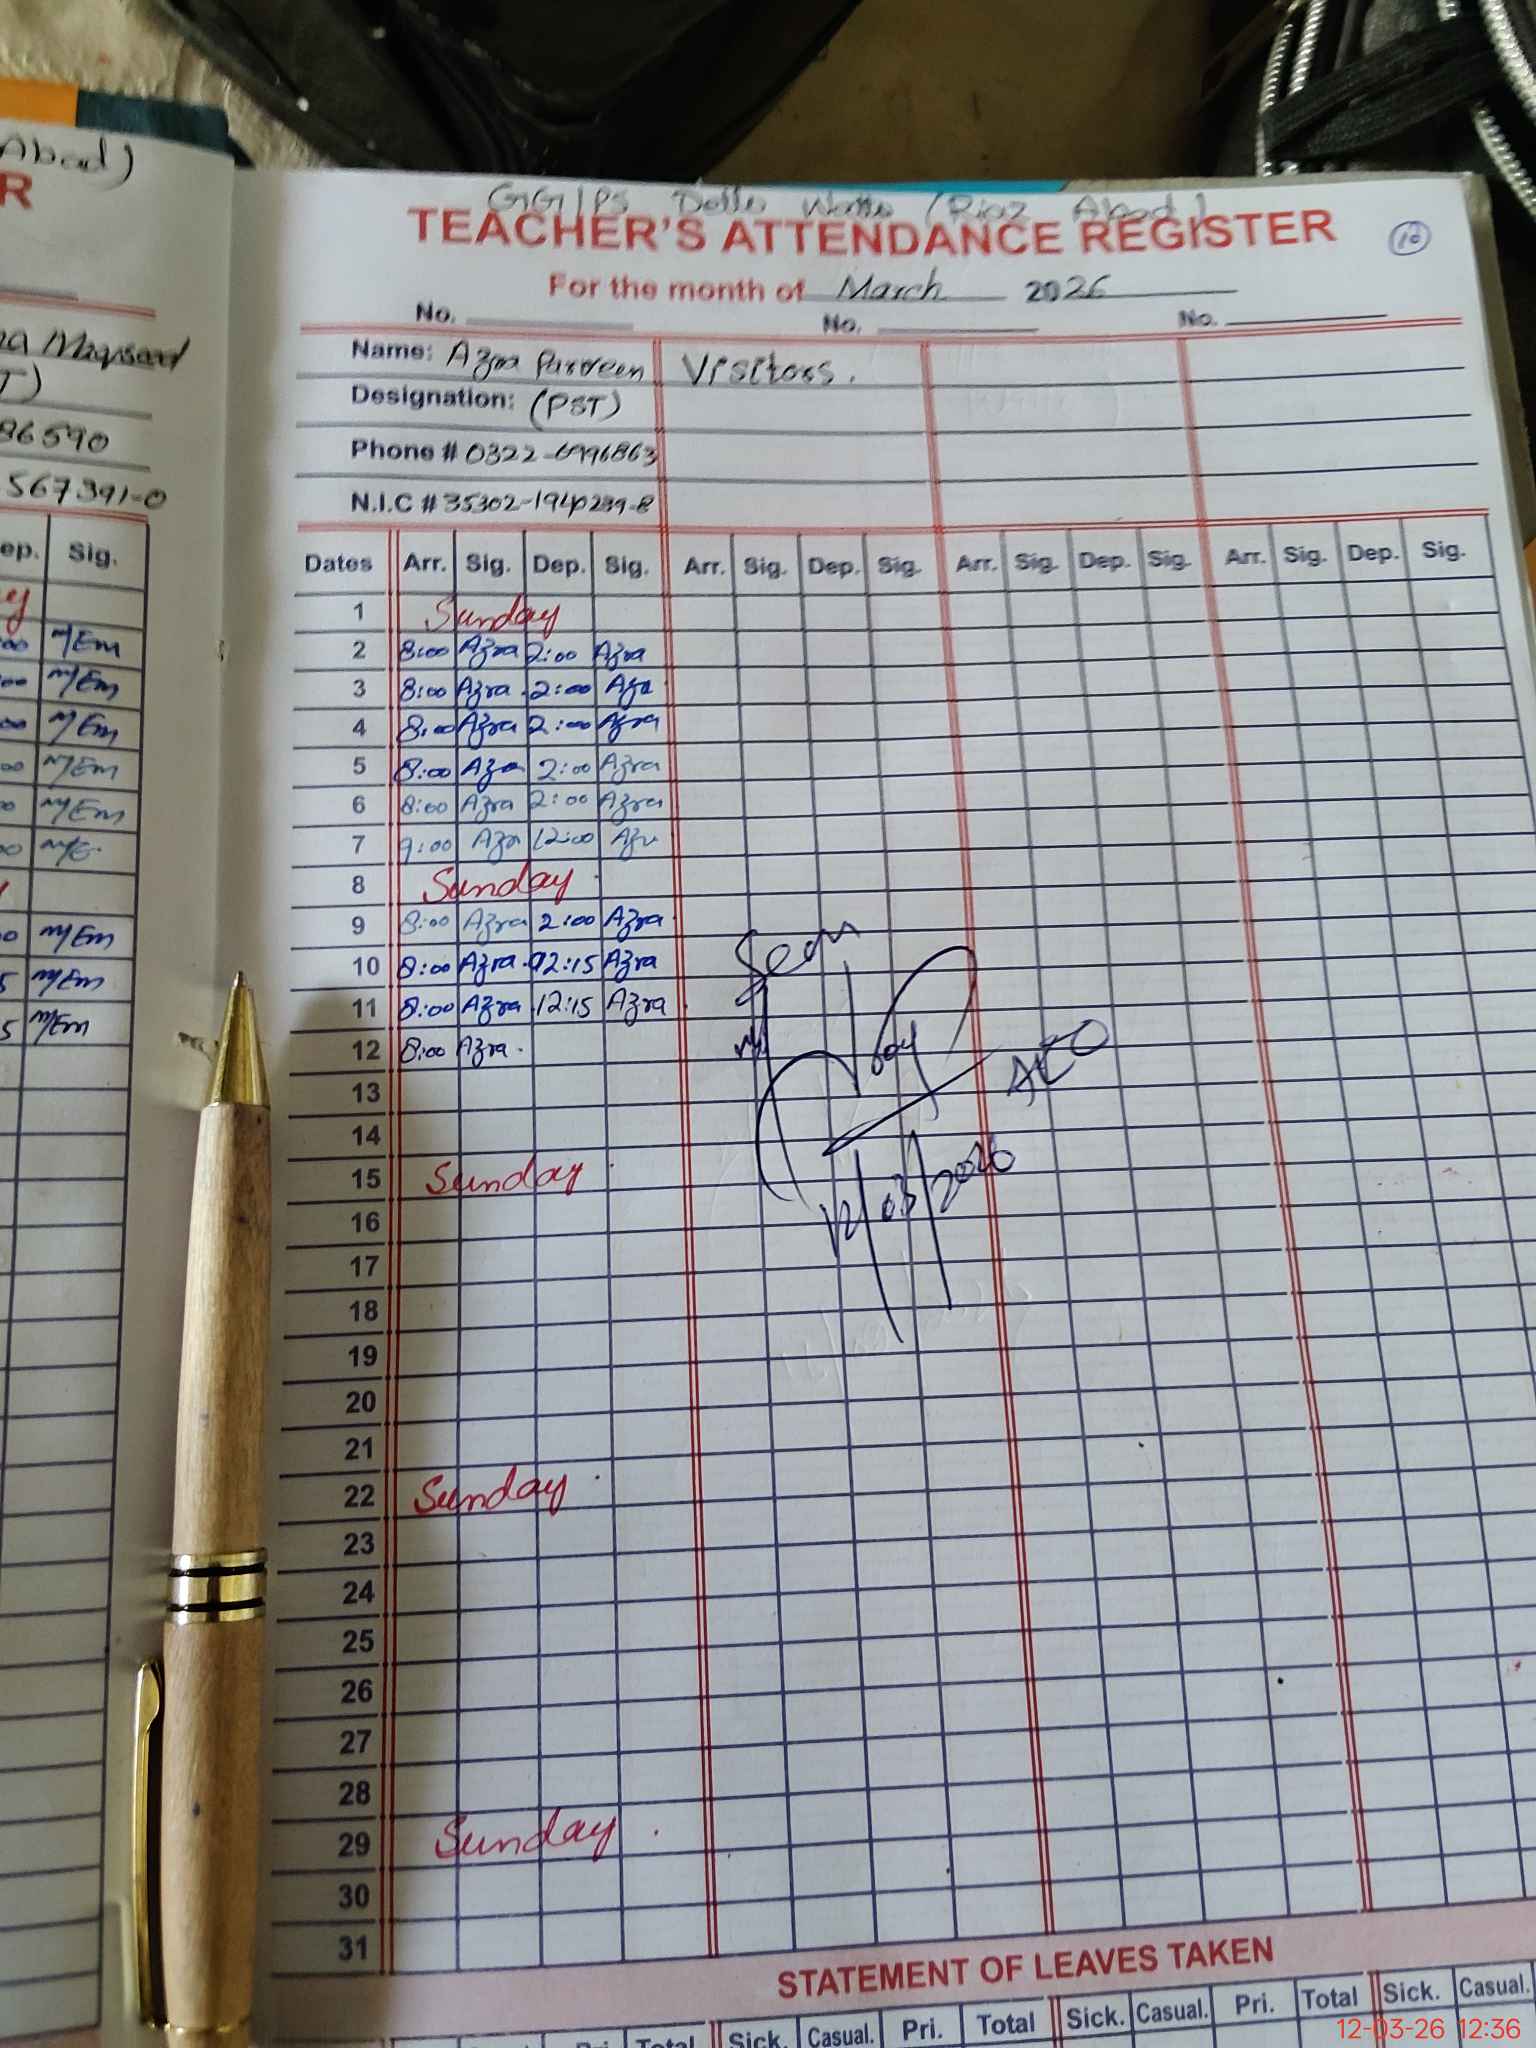 Abad)
R
Maqsood
T)
86590
567391-0
ep. Sig.
y
00 M/Em
00 M/Em
00 M/Em
00 M/Em
0 M/Em
00 M/E
0 M/Em
5 M/Em
5 M/Em
GGPS (Riaz Abad)
TEACHER'S ATTENDANCE REGISTER
10
For the month of March 2026
No. No. No.
Name: Azra Parveen Visitors.
Designation: (PST)
Phone # 0322-6996863
N.I.C # 35302-
Dates Arr. Sig. Dep. Sig. Arr. Sig. Dep. Sig. Arr. Sig. Dep. Sig. Arr. Sig. Dep. Sig.
1 Sunday
2 8:00 Azra 2:00 Azra
3 8:00 Azra 2:00 Aza
4 8:00 Azra 2:00 Azra
5 8:00 Azra 2:00 Azra
6 8:00 Azra 2:00 Azra
7 9:00 Azra 12:00 Azra
8 Sunday
9 8:00 Azra 2:00 Azra
10 8:00 Azra 12:15 Azra
11 8:00 Azra 12:15 Azra
12 8:00 Azra
Seen
AEO
12/03/2026
13
14
15 Sunday
16
17
18
19
20
21
22 Sunday
23
24
25
26
27
28
29 Sunday
30
31
STATEMENT OF LEAVES TAKEN
Pri. Total Sick. Casual. Pri. Total Sick. Casual. Pri. Total Sick. Casual.
12-03-26 12:36